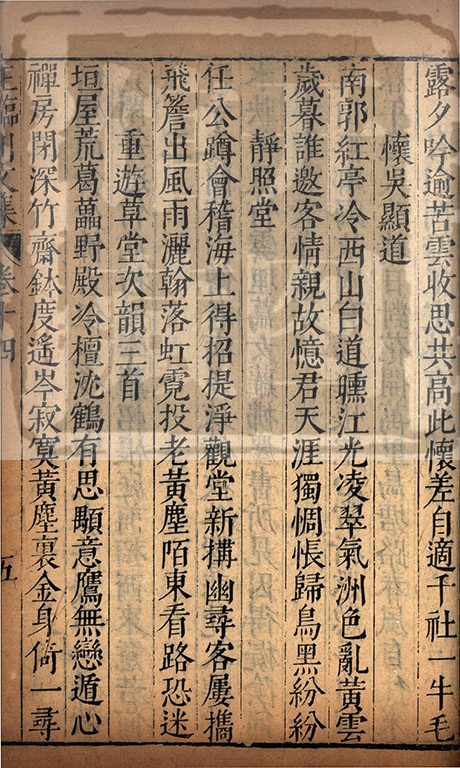 露夕吟逾苦雲收思共高此懷差自適千社一牛毛
懷吳顯道
南郭紅亭冷西山白道曛江光凌翠氣洲色亂黃雲
歲暮誰邀客情親故憶君天涯獨惆悵歸鳥黑紛紛
靜照堂
任公蹲會稽海上得招提淨觀堂新搆幽尋客屢攜
飛簷出風雨灑翰落虹霓投老黃塵陌東看路恐迷
重遊草堂次韻三首
垣屋荒葛藟野殿冷檀沈鶴有思顒意鷹無戀遁心
禪房閉深竹齋鉢度遙岑寂寞黃塵裏金身倚一尋
王臨川文集
卷十四
五